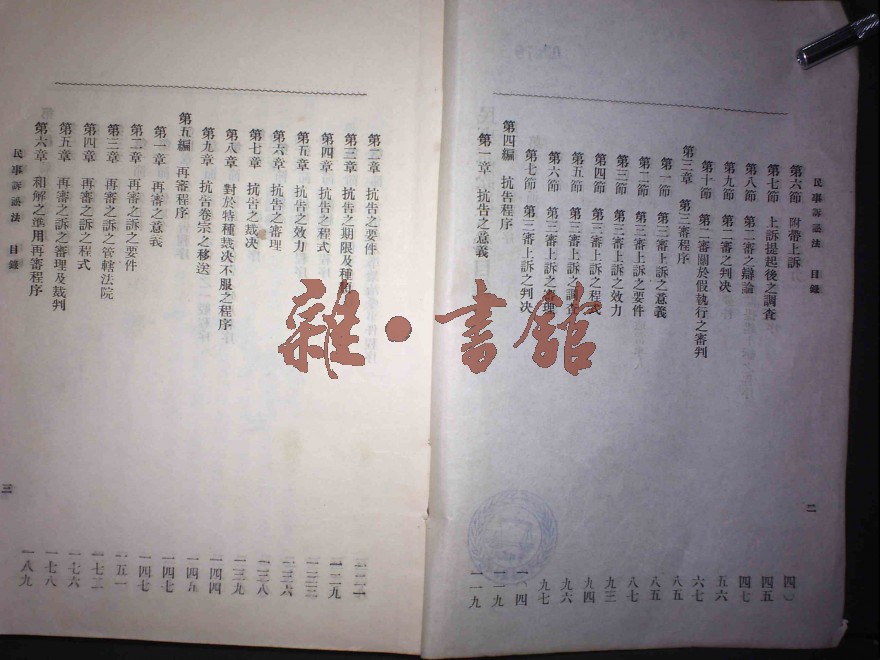 民事訴訟法 目錄
二
第六節 附帶上訴 四〇
第七節 上訴提起後之調查 四五
第八節 第二審之辯論 四七
第九節 第二審之判決 五六
第十節 第二審關於假執行之審判 六七
第三章 第三審程序 八五
第一節 第三審上訴之意義 八五
第二節 第三審上訴之要件 八七
第三節 第三審上訴之效力 九三
第四節 第三審上訴之程式 九四
第五節 第三審上訴之調查 九六
第六節 第三審上訴之審理 九七
第七節 第三審上訴之判決 一〇四
第四編 抗告程序 一一九
第一章 抗告之意義 一一九
第二章 抗告之要件 一二一
第三章 抗告之期限及種類 一二九
第四章 抗告之程式 一三三
第五章 抗告之效力 一三六
第六章 抗告之審理 一三八
第七章 抗告之裁決 一三九
第八章 對於特種裁決不服之程序 一四四
第九章 抗告卷宗之移送 一四五
第五編 再審程序 一四七
第一章 再審之意義 一四七
第二章 再審之訴之要件 一五一
第三章 再審之訴之管轄法院 一七二
第四章 再審之訴之程式 一七六
第五章 再審之訴之審理及裁判 一七八
第六章 和解之準用再審程序 一八九
民事訴訟法 目錄
三
雜·書館